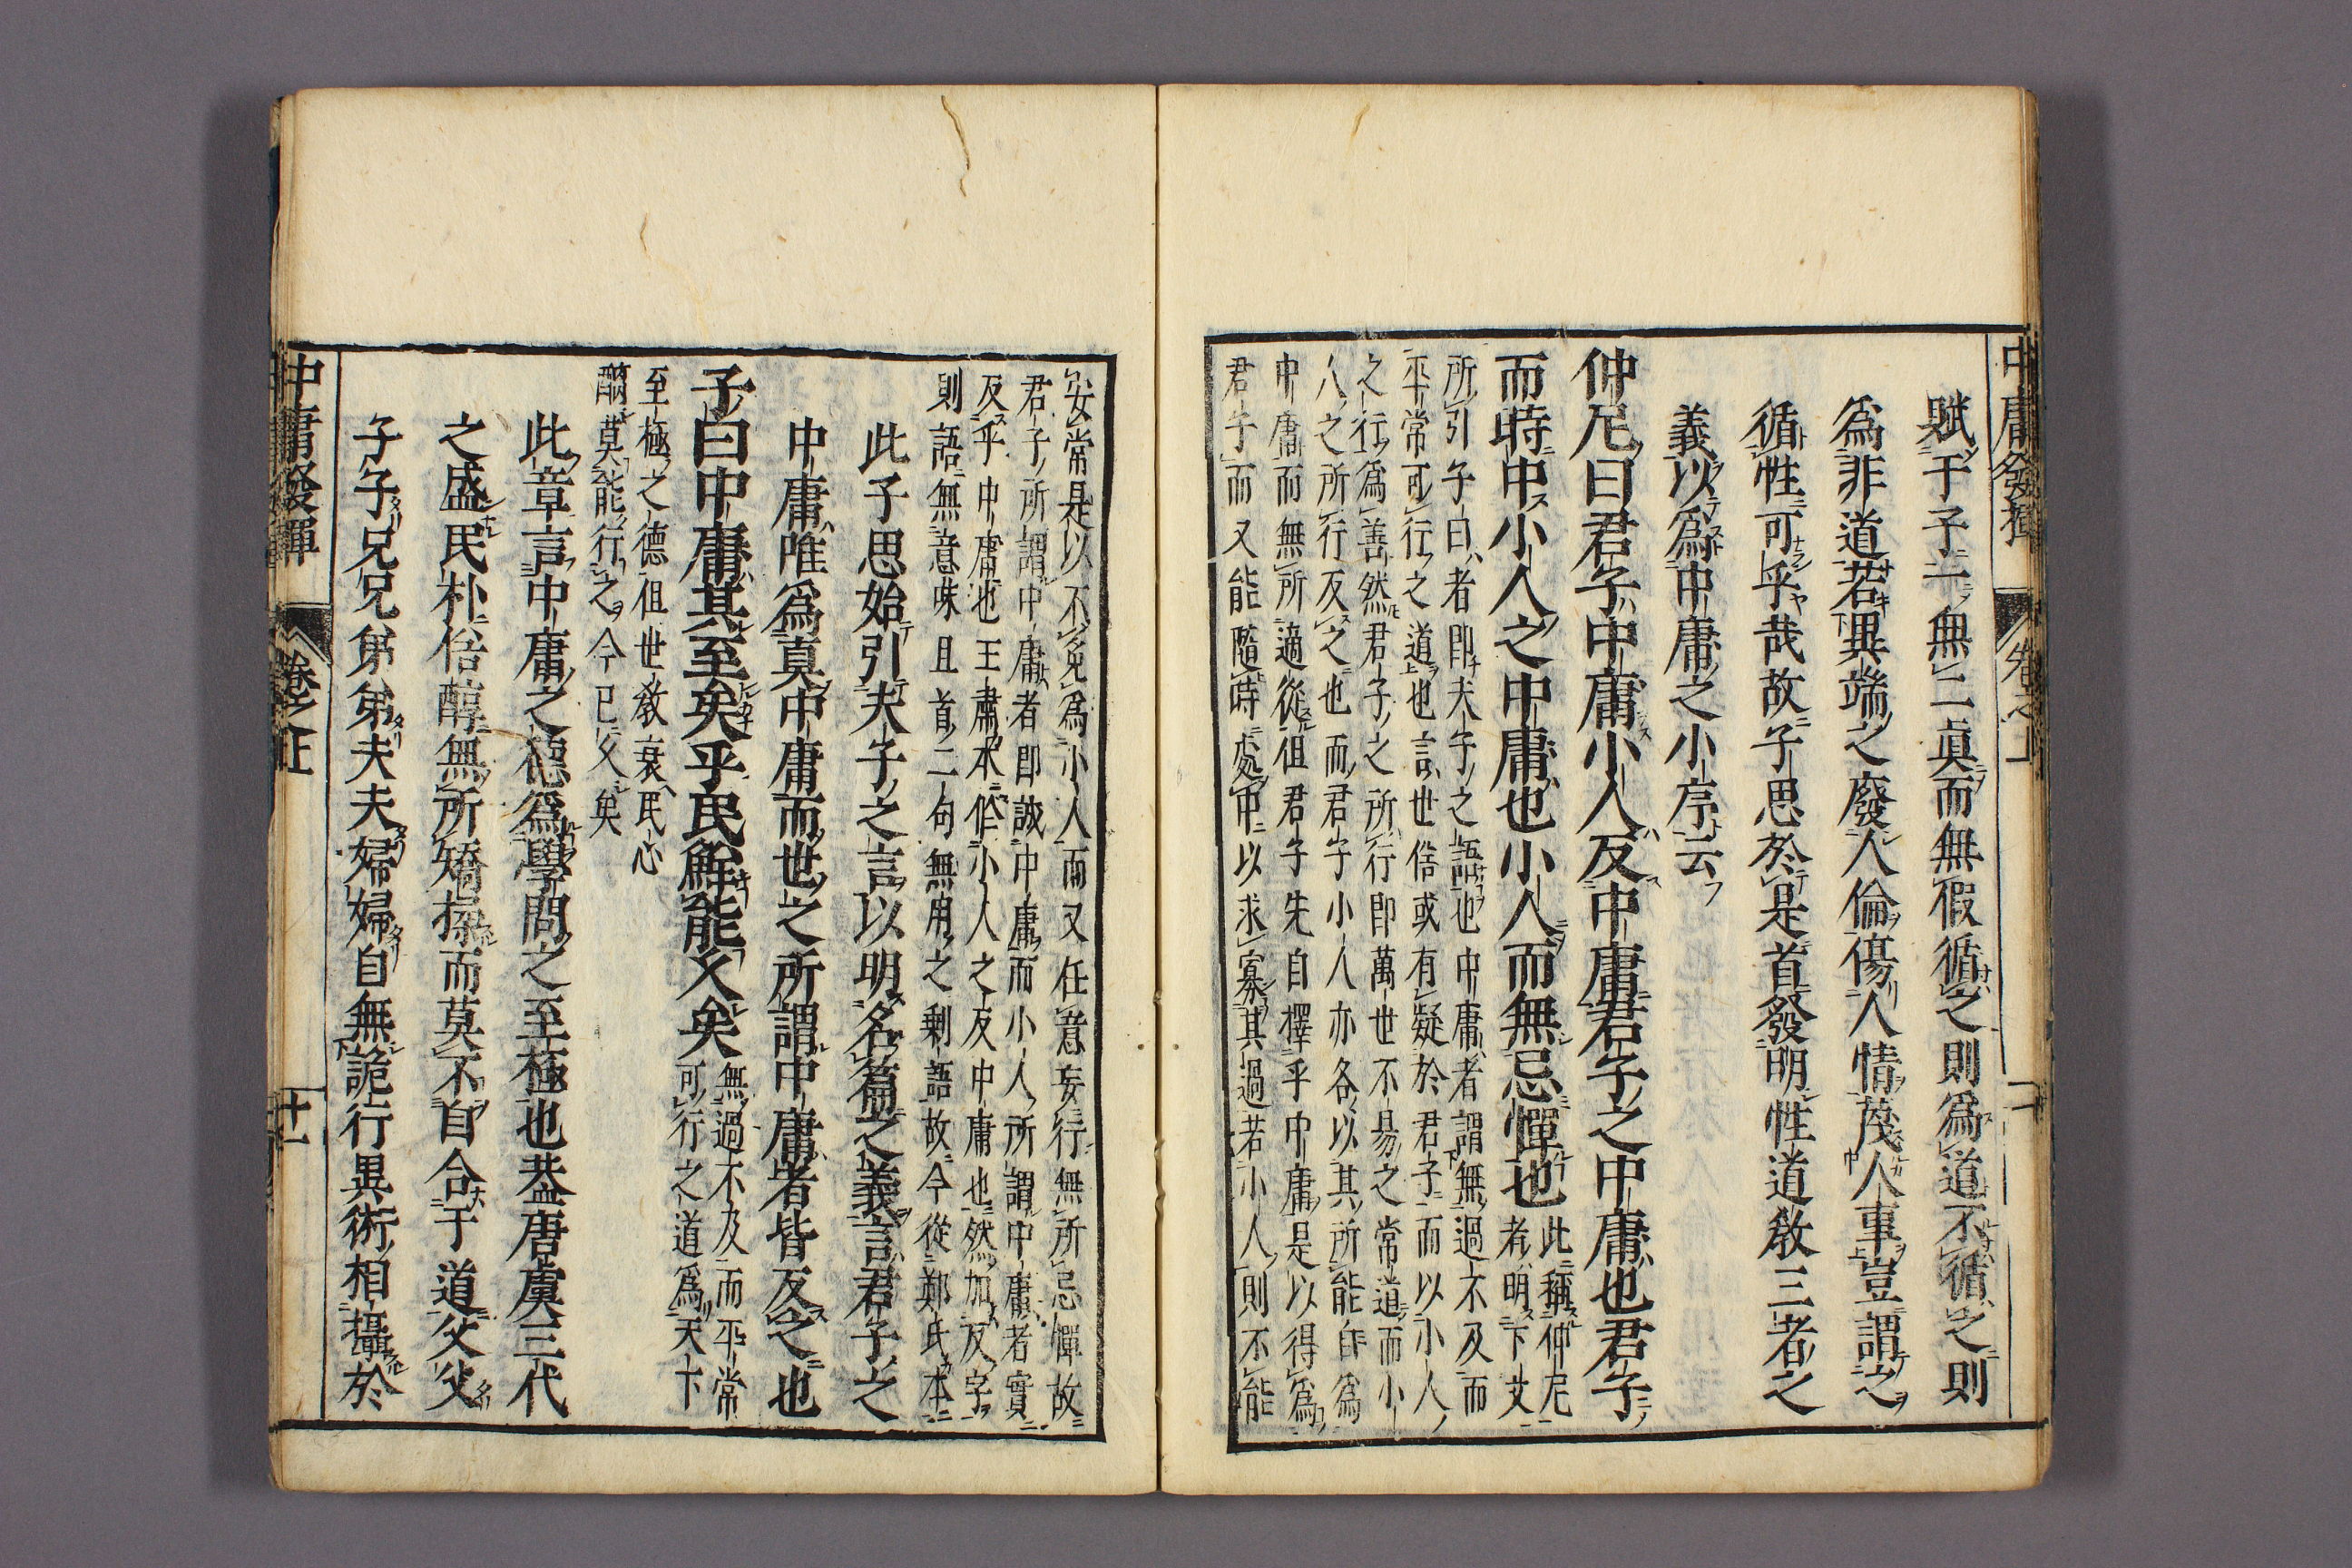 中庸發揮
卷之上
賦于子一無二眞而無假循之則爲道不循之則
爲非道若異端之廢人倫傷人情蔑人事豈謂之
循性可乎哉故子思於是首發明性道敎三者之
義以爲中庸之小序云
仲尼曰君子中庸小人反中庸君子之中庸也君子
而時中小人之中庸也小人而無忌憚也
此稱仲尼
者明下文
所引子曰者即夫子之語也中庸者謂無過不及而
平常可行之道也言世俗或有疑於君子而以小人
之行爲善然君子之所行即萬世不易之常道而小
人之所行反之也而君子小人亦各以其所能自爲
中庸而無所適從但君子先自擇乎中庸是以得爲
君子而又能隨時處中以求寡其過若小人則不能
安常是以不免爲小人而又任意妄行無所忌憚故
君子所謂中庸者即誠中庸而小人所謂中庸者實
反乎中庸也王肅本作小人之反中庸也然加反字
則語無意味且首二句無用之剩語故今從鄭氏本
此子思始引夫子之言以明名篇之義言君子之
中庸唯爲眞中庸而世之所謂中庸者皆反之也
子曰中庸其至矣乎民鮮能久矣
無過不及而平常
可行之道爲天下
至極之德但世敎衰民心
醨莫能行之今已久矣
此章言中庸之德爲學問之至極也葢唐虞三代
之盛民朴俗醇無所矯揉而莫不自合于道父父
子子兄兄弟弟夫夫婦婦自無詭行異術相攝於
中庸發揮
卷之上
十一